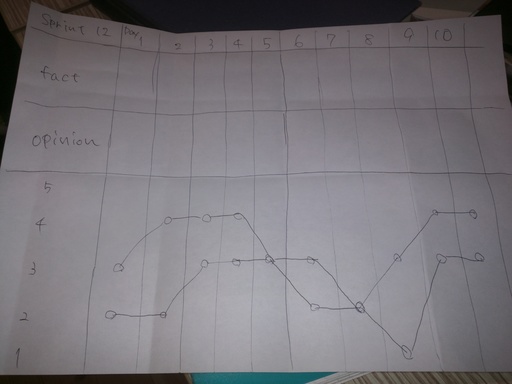 Sprint 12 Day 1 2 3 4 5 6 7 8 9 10
fact
opinion
5
4
3
2
1